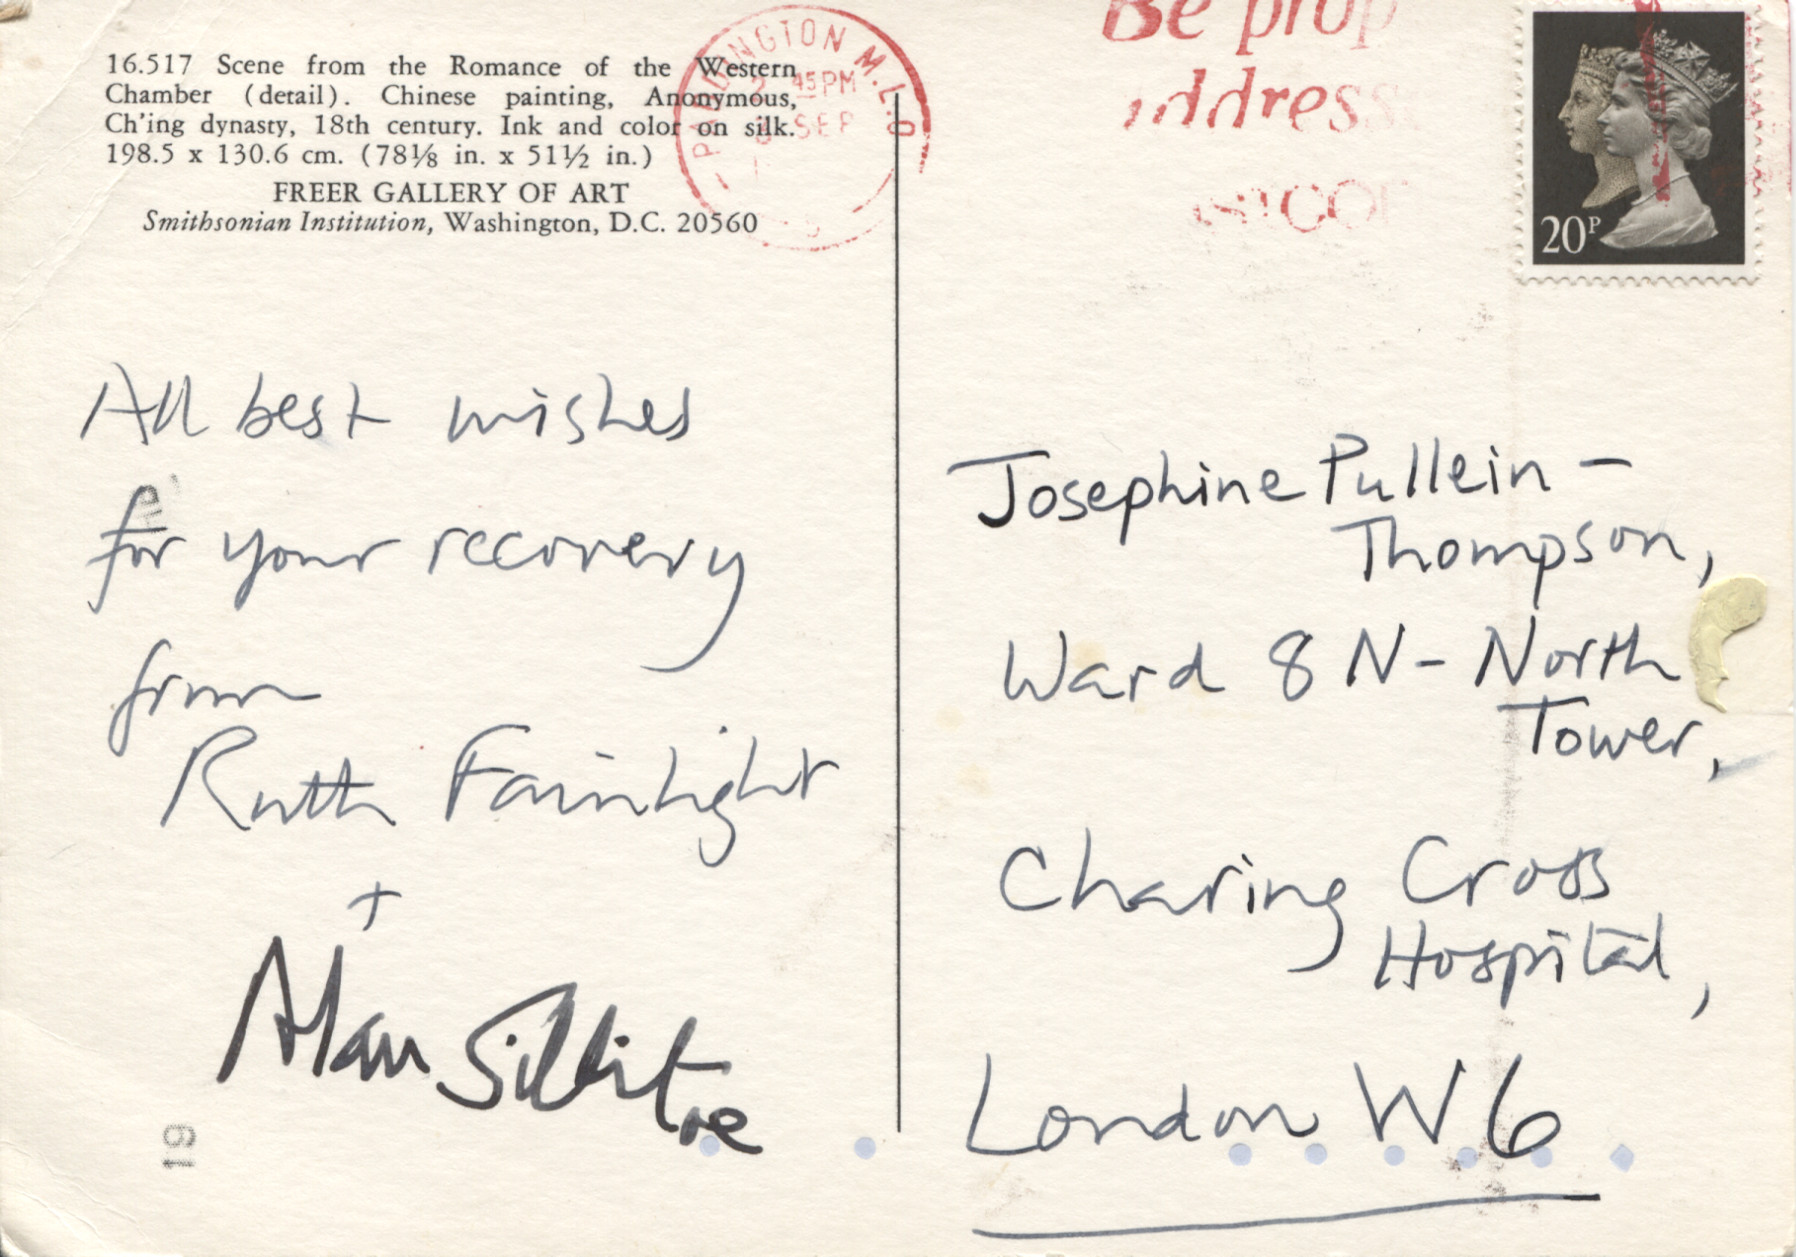 16.517 Scene from the Romance of the Western
Chamber (detail). Chinese painting, Anonymous,
Ch'ing dynasty, 18th century. Ink and color on silk.
198.5 x 130.6 cm. (78⅛ in. x 51½ in.)
FREER GALLERY OF ART
Smithsonian Institution, Washington, D.C. 20560
PADDINGTON M.L.O
45 PM
SEP
Be prop
address
20P
All best wishes
for your recovery
from
Ruth Fainlight
+
Alan Sillitoe
19
Josephine Pullein-
Thompson,
Ward 8 N - North
Tower,
Charing Cross
Hospital,
London W6